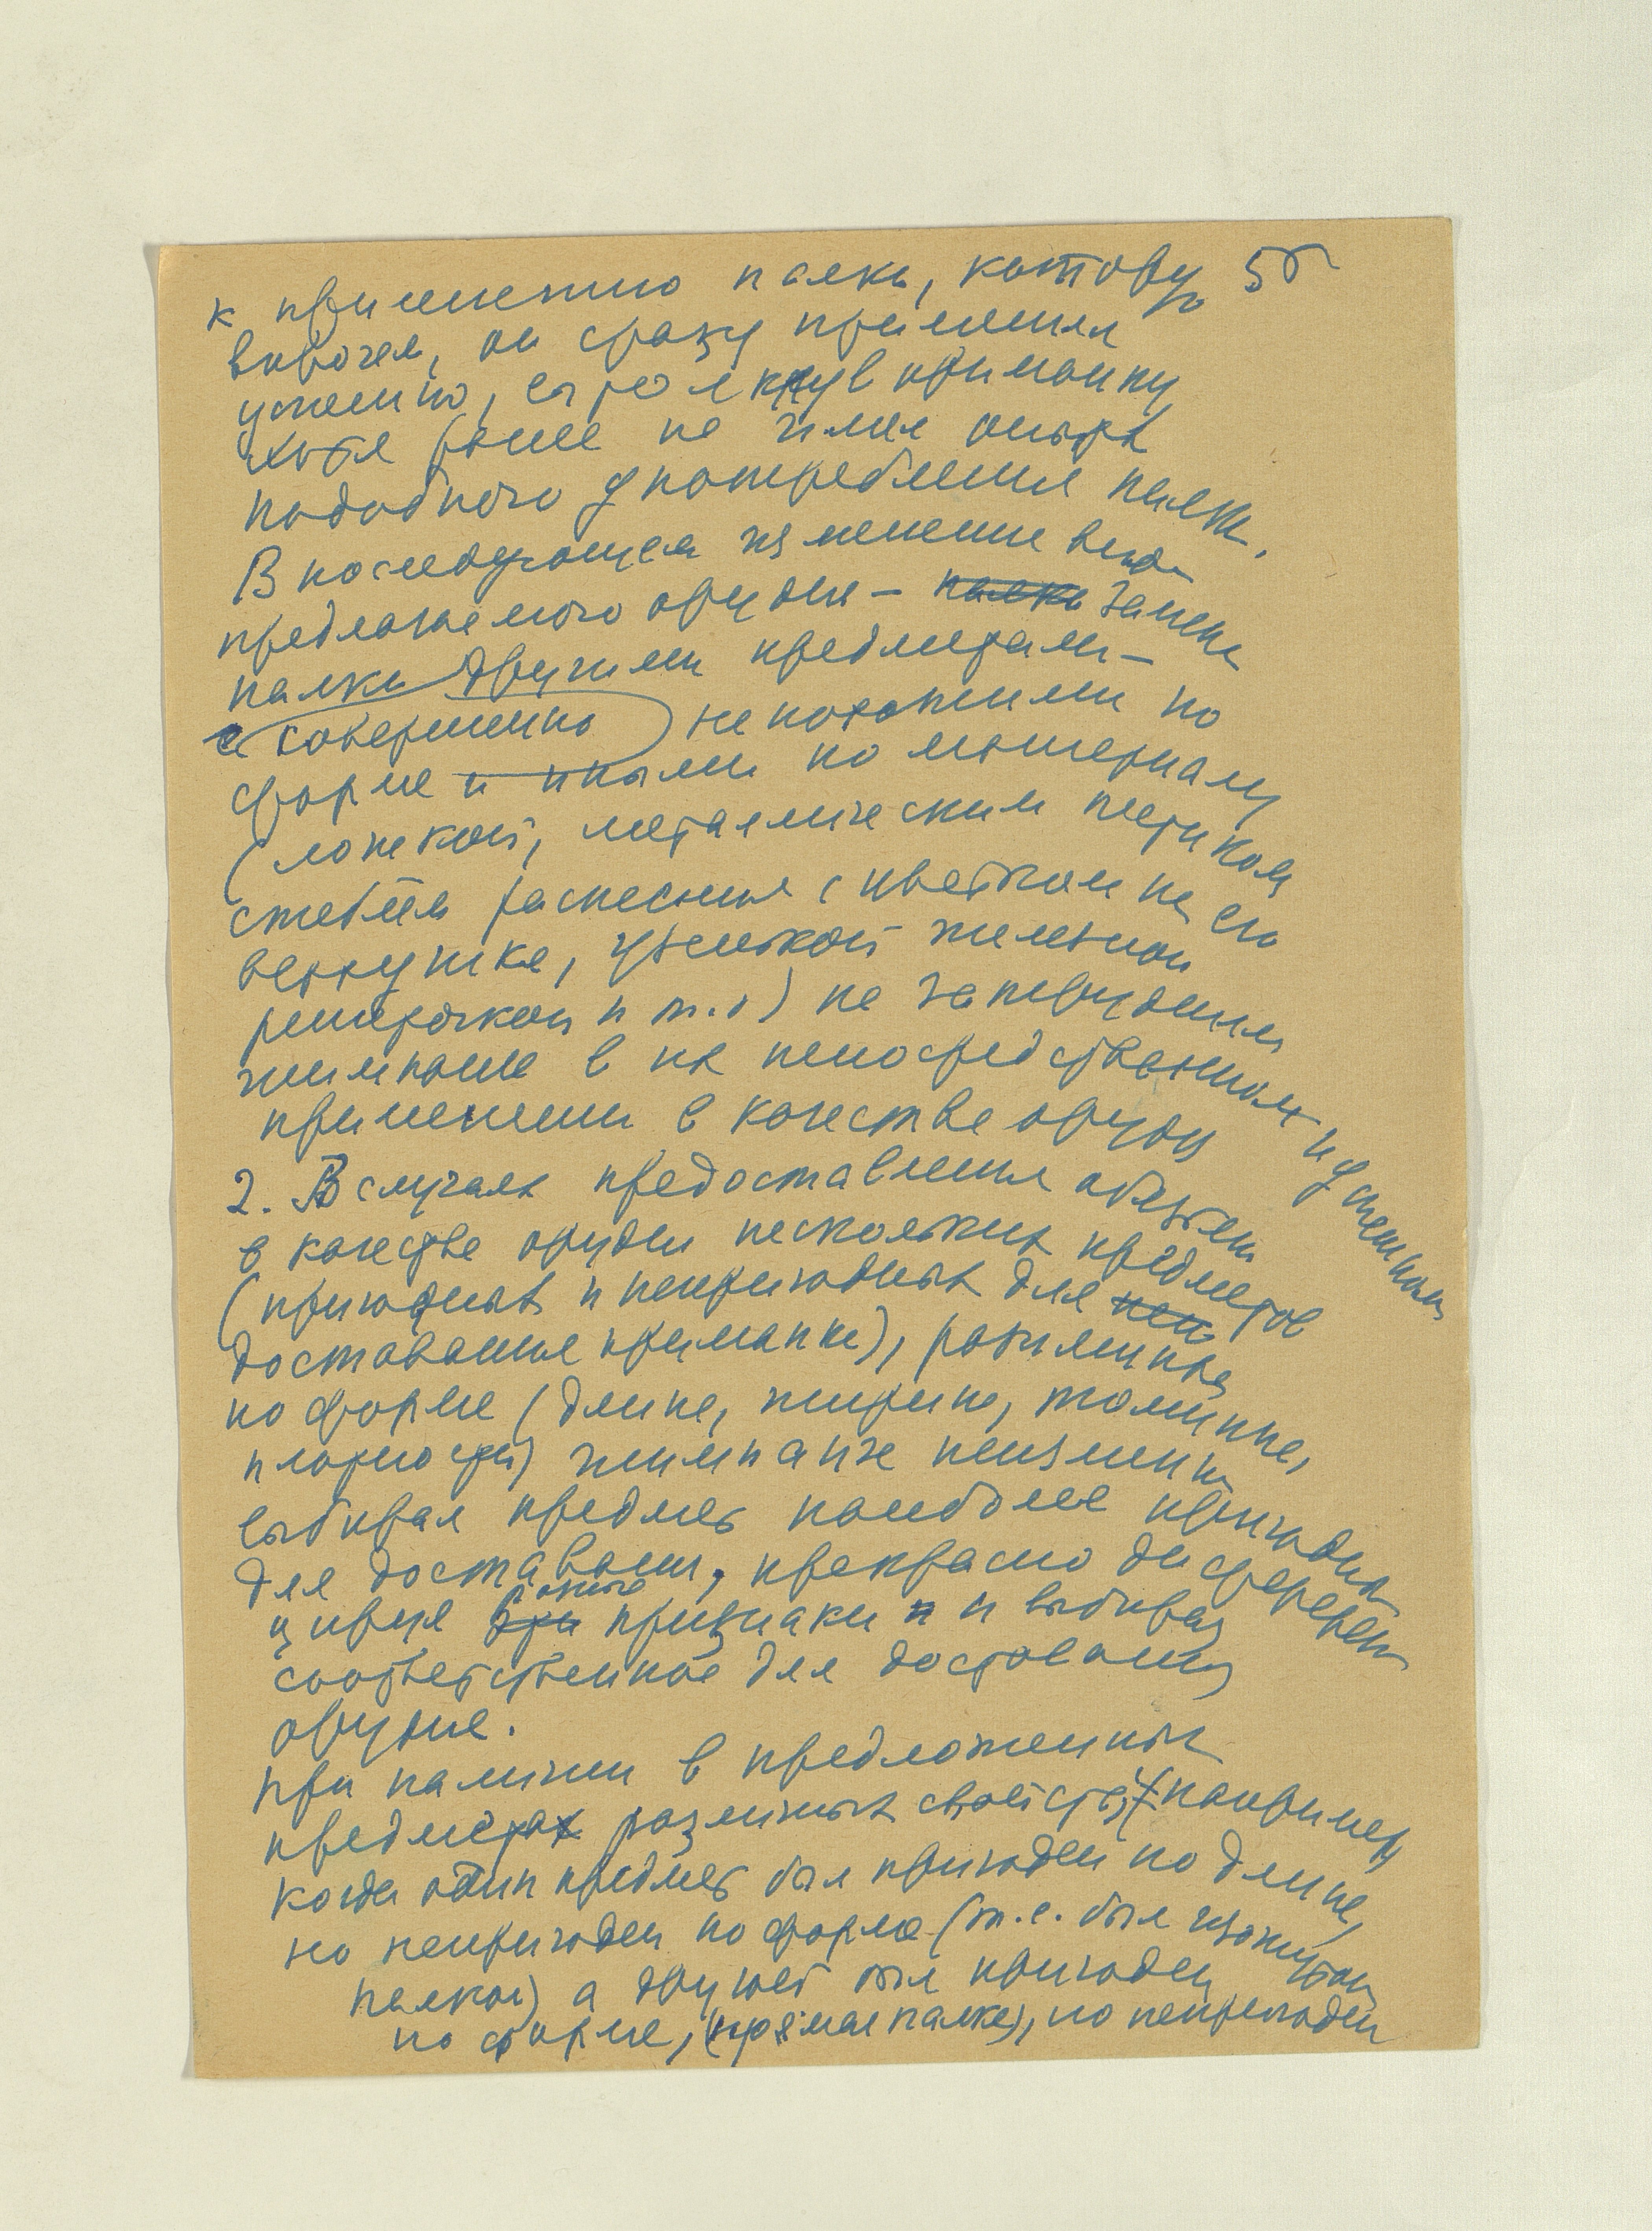 к применению палки, которую 5б
впрочем, он сразу применил
успешно, столкнув приманку,
хотя ранее не имел опыта
подобного употребления палки.
В последующем изменение вида
предлагаемого орудия — палки замена
палки другими предметами —
совершенно непохожими по
форме и иными по материалу
(ложкой, металлическим прутиком
стеблем растения с цветком на его
верхушке, узенькой железной
решеткой и т.п) не затруднили
шимпанзе в их непосредственном и успешном
применении в качестве орудия
2. В случаях предоставления обезьяне
в качестве орудия нескольких предметов
(пригодных и непригодных для
доставания приманки), различных
по форме (длине, ширине, толщине,
плотности) шимпанзе неизменно
выбирал предмет наиболее пригодный
для доставания, прекрасно диференци
цируя эти разные признаки и и выбирая
соответственное для доставания
орудие.
При наличии в предложенных
предметах различных свойств, например
когда один предмет был пригоден по длине,
но непригоден по форме (т.е. был изогнутой
палкой) а другой был пригоден
по форме, (прямая палка), но непригоден